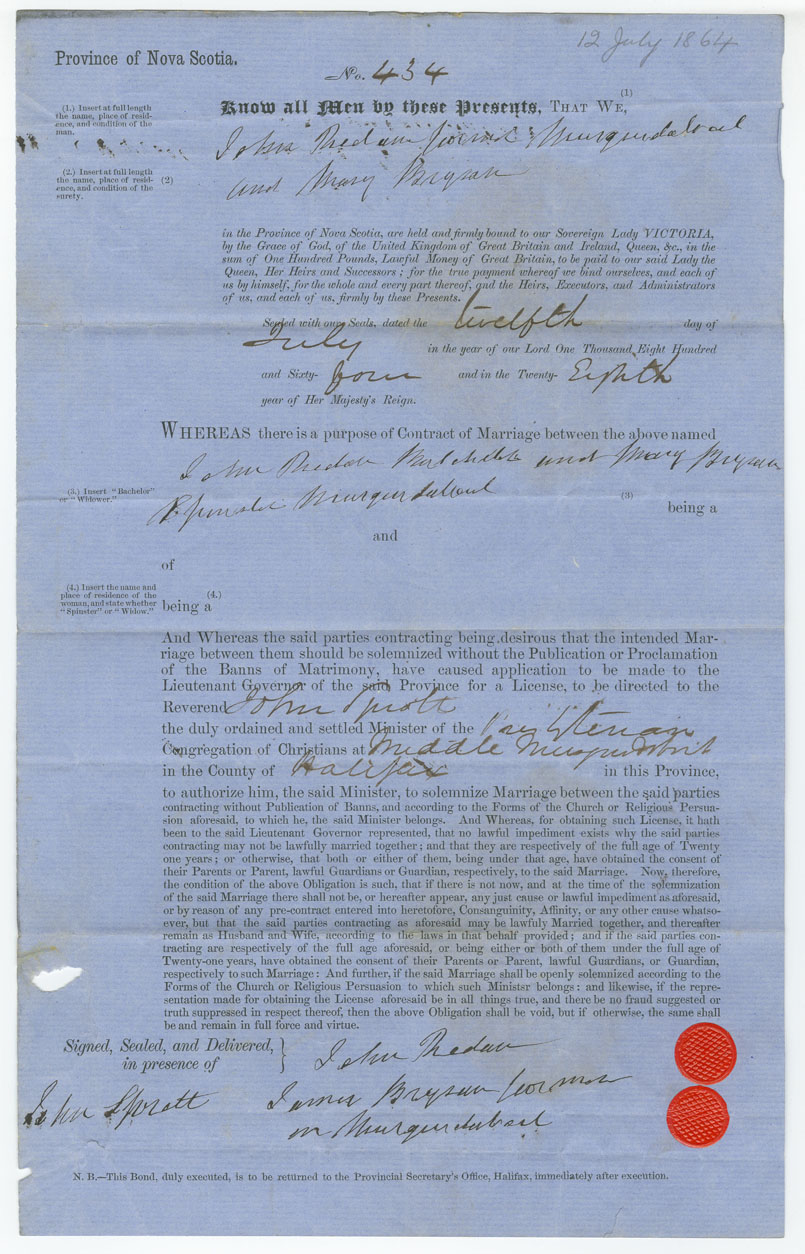 12 July 1864
Province of Nova Scotia.
No. 434
(1.) Insert at full length
the name, place of resid-
ence, and condition of the
man.
(1)
Know all Men by these Presents, THAT WE,
John Redan
(2.) Insert at full length
the name, place of resid-
ence, and condition of the
surety.
(2)
and Mary Bryson
in the Province of Nova Scotia, are held and firmly bound to our Sovereign Lady VICTORIA,
by the Grace of God, of the United Kingdom of Great Britain and Ireland, Queen, &c., in the
sum of One Hundred Pounds, Lawful Money of Great Britain, to be paid to our said Lady the
Queen, Her Heirs and Successors; for the true payment whereof we bind ourselves, and each of
us by himself, for the whole and every part thereof, and the Heirs, Executors, and Administrators
of us, and each of us, firmly by these Presents.
Sealed with our Seals, dated the twelfth day of
July in the year of our Lord One Thousand Eight Hundred
and Sixty- four and in the Twenty- Eighth
year of Her Majesty's Reign.
WHEREAS there is a purpose of Contract of Marriage between the above named
John Redan and Mary Bryson
(3.) Insert "Bachelor"
or "Widower."
Spinster
(3) being a
and
of
(4.) Insert the name and
place of residence of the
woman, and state whether
"Spinster" or "Widow."
(4.)
being a
And Whereas the said parties contracting being desirous that the intended Mar-
riage between them should be solemnized without the Publication or Proclamation
of the Banns of Matrimony, have caused application to be made to the
Lieutenant Governor of the said Province for a License, to be directed to the
Reverend John Sprott
the duly ordained and settled Minister of the Presbyterian
Congregation of Christians at Middle Musquodoboit
in the County of Halifax in this Province,
to authorize him, the said Minister, to solemnize Marriage between the said parties
contracting without Publication of Banns, and according to the Forms of the Church or Religious Persua-
sion aforesaid, to which he, the said Minister belongs. And Whereas, for obtaining such License, it hath
been to the said Lieutenant Governor represented, that no lawful impediment exists why the said parties
contracting may not be lawfully married together; and that they are respectively of the full age of Twenty
one years; or otherwise, that both or either of them, being under that age, have obtained the consent of
their Parents or Parent, lawful Guardians or Guardian, respectively, to the said Marriage. Now, therefore,
the condition of the above Obligation is such, that if there is not now, and at the time of the solemnization
of the said Marriage there shall not be, or hereafter appear, any just cause or lawful impediment as aforesaid,
or by reason of any pre-contract entered into heretofore, Consanguinity, Affinity, or any other cause whatso-
ever, but that the said parties contracting as aforesaid may be lawfuly Married together, and thereafter
remain as Husband and Wife, according to the laws in that behalf provided; and if the said parties con-
tracting are respectively of the full age aforesaid, or being either or both of them under the full age of
Twenty-one years, have obtained the consent of their Parents or Parent, lawful Guardians, or Guardian,
respectively to such Marriage: And further, if the said Marriage shall be openly solemnized according to the
Forms of the Church or Religious Persuasion to which such Ministsr belongs: and likewise, if the repre-
sentation made for obtaining the License aforesaid be in all things true, and there be no fraud suggested or
truth suppressed in respect thereof, then the above Obligation shall be void, but if otherwise, the same shall
be and remain in full force and virtue.
Signed, Sealed, and Delivered,
in presence of
John Redan
John Sprott
James Bryson
N. B.—This Bond, duly executed, is to be returned to the Provincial Secretary's Office, Halifax, immediately after execution.